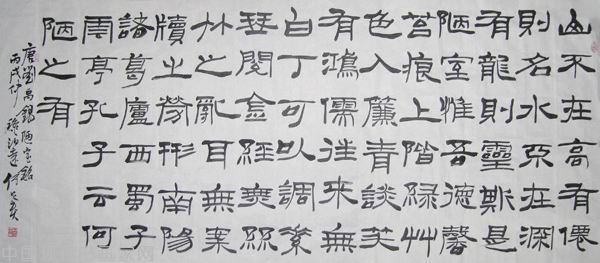 山不在高有僊
則名水不在深
有龍則靈斯是
陋室惟吾德馨
苔痕上階綠艸
色入簾青談笑
有鴻儒往來無
白丁可以調素
琴閱金經無絲
竹之亂耳無案
牘之勞形南陽
諸葛廬西蜀子
雲亭孔子云何
陋之有
唐劉禹錫陋室銘
丙戌仲